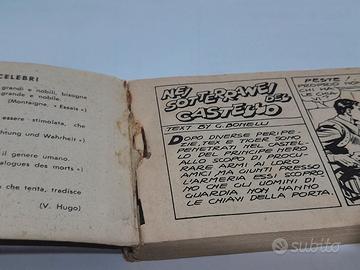 CELEBRI
grandi e nobili, bisogna
grande e nobile.
(Montaigne. « Essais »)
essere stimolata, che
htung und Wahrheir »)
il genere umano.
ialogues des morts »)
che tenta, tradisce
(V. Hugo)
NEI
SOTTERRANEI
DEL
CASTELLO
TEXT BY G. BONELLI
DOPO DIVERSE PERIPE-
ZIE, TEX E TIGER SONO
PENETRATI NEL CASTEL-
LO DEL PRINCIPE NERO
ALLO SCOPO DI PROCU-
RARE ARMI AI LORO
AMICI, MA GIUNTI PRESSO
L'ARMERIA ESSI SCOPRO
NO CHE GLI UOMINI DI
GUARDIA NON HANNO
LE CHIAVI DELLA PORTA.
PESTE!
CHI HA
LE
subito